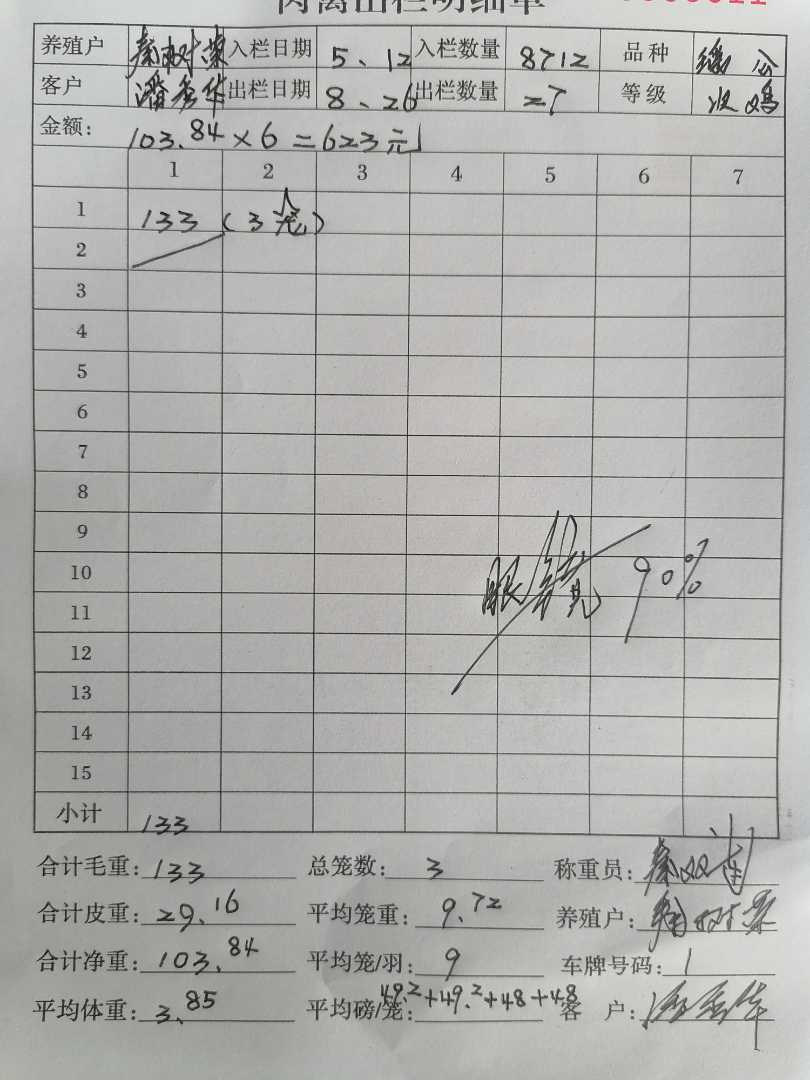 肉禽出栏明细单
养殖户 秦树荣 入栏日期 5、12 入栏数量 8712 品种
客户 潘秀华 出栏日期 8、26 出栏数量 27 等级 次鸡
金额: 103.84×6=623元
1 2 3 4 5 6 7
1 133 (3笼)
2
3
4
5
6
7
8
9
10 90%
11
12
13
14
15
小计 133
合计毛重: 133 总笼数: 3 称重员:
合计皮重: 29.16 平均笼重: 9.72 养殖户:
合计净重: 103.84 平均笼/羽: 9 车牌号码: 1
平均体重: 3.85 平均磅/笼: 49.2+49.2+48+48 客户: 潘秀华